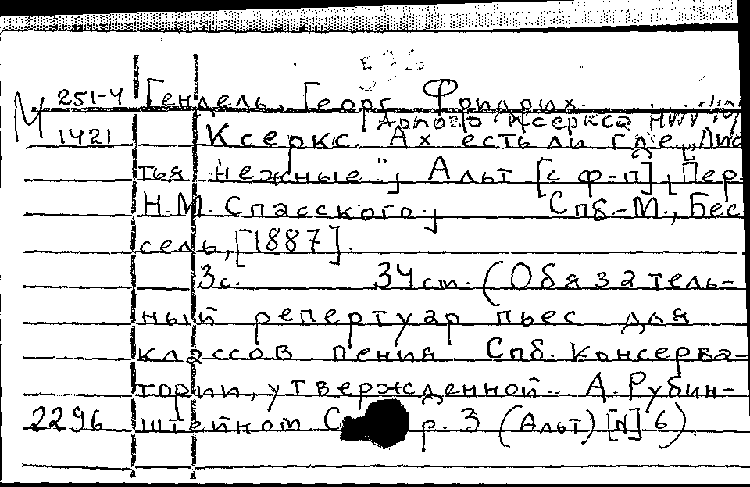 М 251-4 Гендель, Георг Фридрих
Ариозо Ксеркса HWV
1421 Ксеркс. Ах есть ли где „Лис
тья нежные"; Альт [с ф-п]; Пер.
Н.М. Спасского; Спб.-М., Бес
сель, [1887].
3с. 34 см. (Обязатель-
ный репертуар пьес для
классов пения Спб. Консерва-
тории, утвержденной А. Рубин-
2296 штейном С р. 3 (Альт) [N] 6)